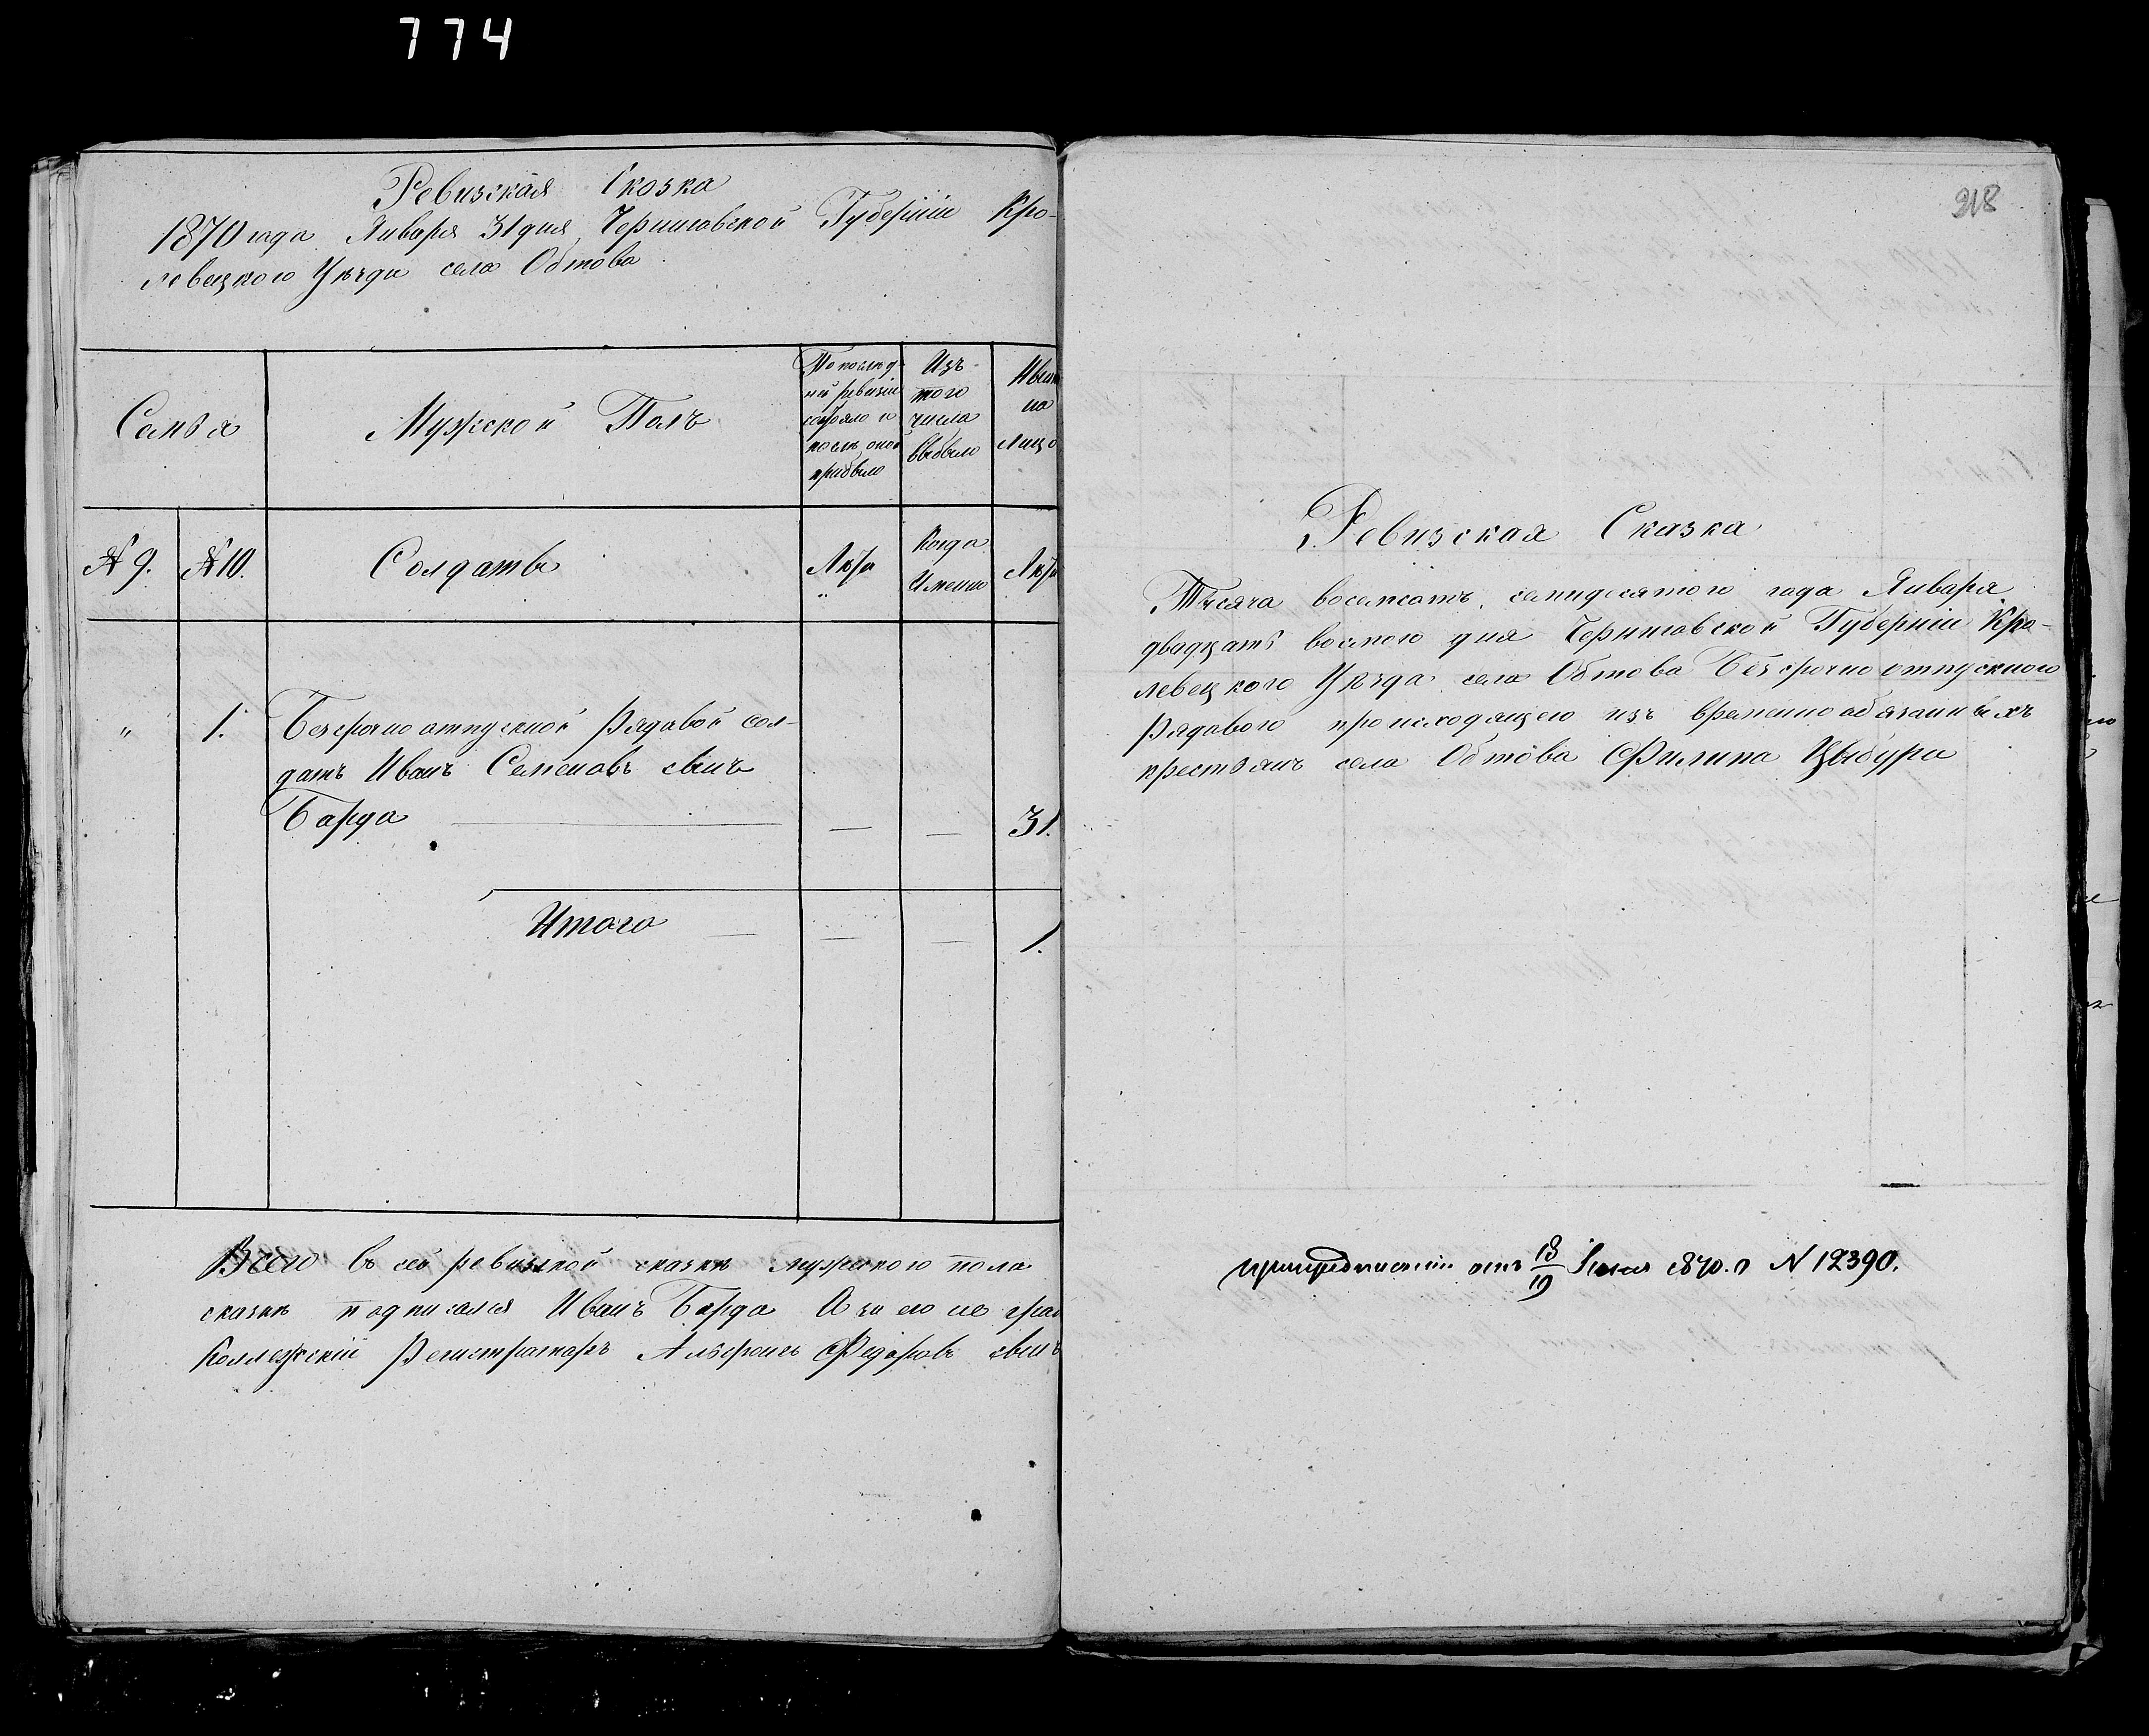 774
Ревизская Сказка
1870 года Января 31 дня, Черниговской Губернии Кро-
левецкого Уѣзда села Обтова
Семья
Мужской Полъ
По послѣд-
ней ревизіи
состояло и
послѣ оной
прибыло
Изъ
того
числа
выбыло
Нынѣ
на
лицо
№ 9.
№ 10.
Солдаты
Лѣта
Когда
Именно
Лѣта
„ 1. Безсрочно отпускной Рядовой сол-
датъ Иванъ Семеновъ сынъ
Барда — — 31.
Итого — — — 1.
Всего въ сей ревизкой сказкѣ мужеского пола
сказкѣ подписался Иванъ Барда А за его не грам
Коллежскій Регистраторъ Федоровъ сынъ
218
Ревизская Сказка
Тысяча восемсотъ семидесятого года Января
двадцать восмого дня Черниговской Губерніи Кро-
левецкого Уѣзда села Обтова Безсрочно отпускного
Рядового происходящего изъ временно обязанныхъ
крестьянъ села Обтова Филипа Цыбура
при предписаніи отъ 18/19 1870. № 12390.